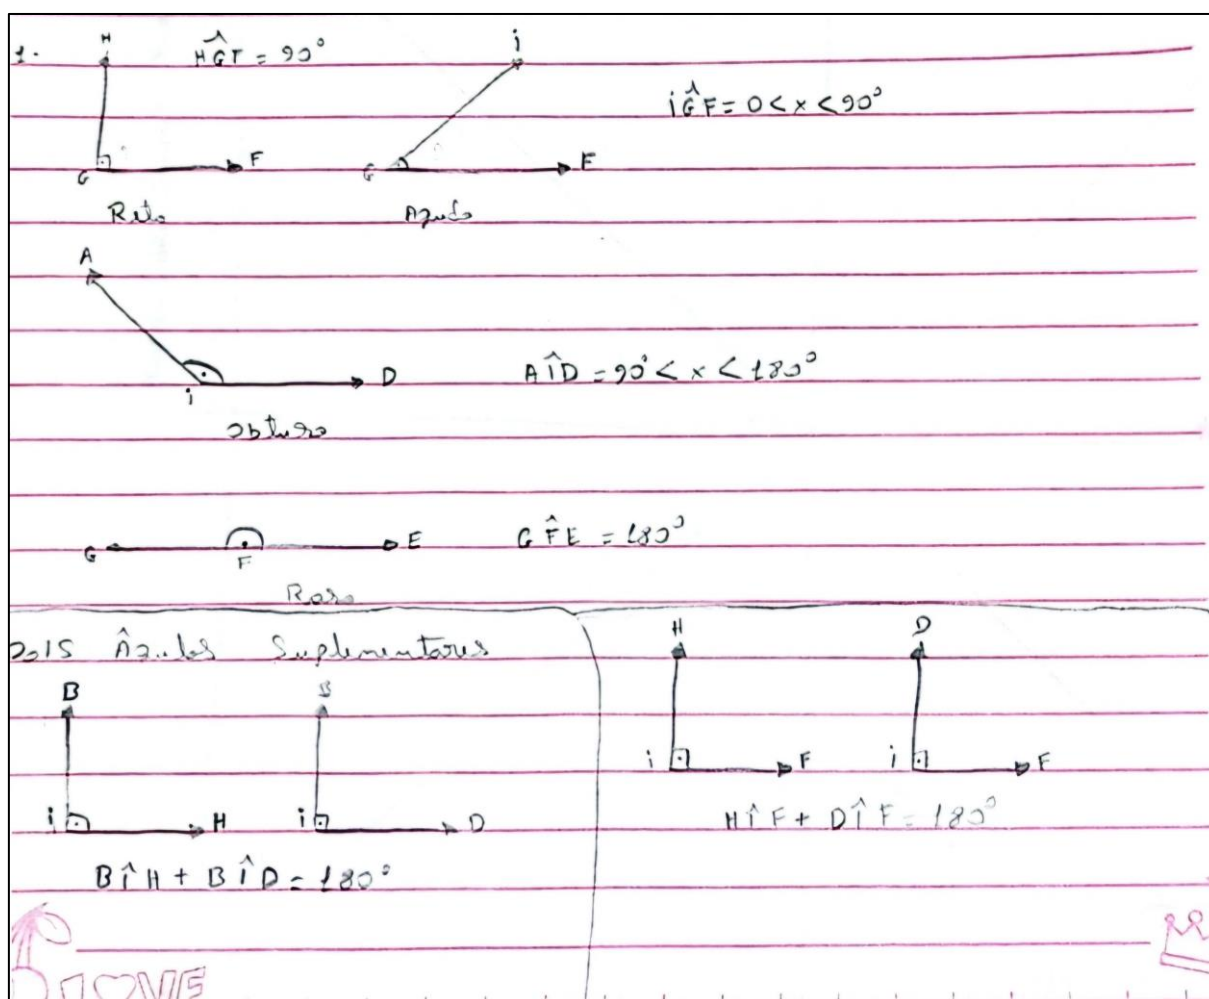 1.
H
HĜF = 90°
i
iĜF = 0 < x < 90°
G
F
G
F
Reto
Agudo
A
i
D
AÎD = 90° < x < 180°
obtuso
G
F
E
GF̂E = 180°
Raso
Dois Âgulos Suplementares
B
B
i
H
i
D
BÎH + BÎD = 180°
H
D
i
F
i
F
HÎF + DÎF = 180°
LOVE